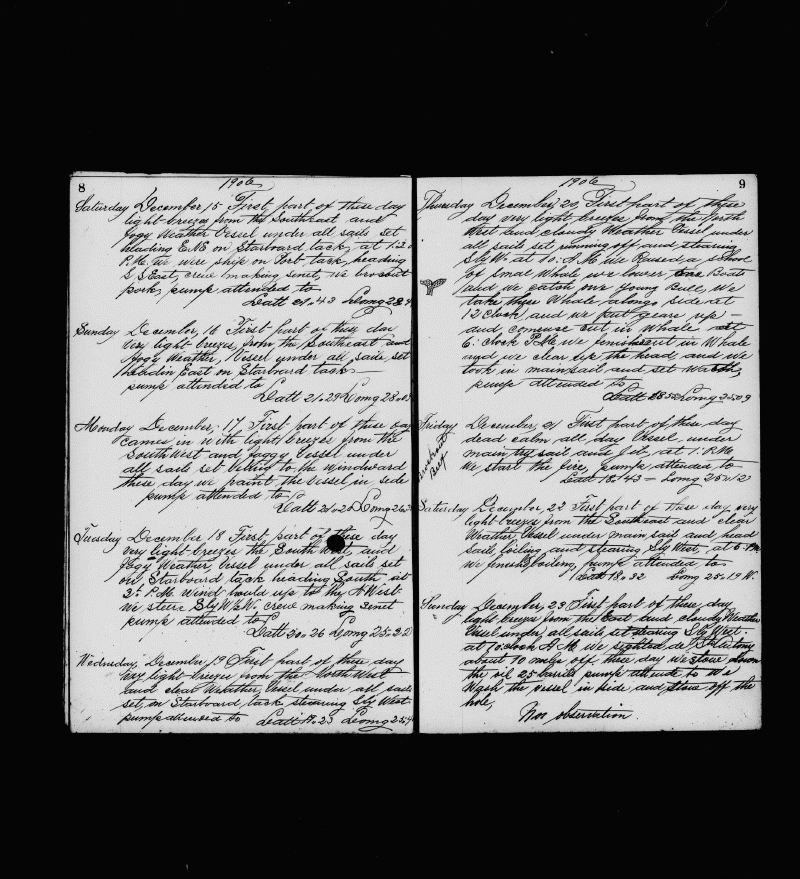 8
1906
Saturday December 15 First part of these day
light breezes from the Southeast and
fogy Weather Vessel under all sails set
heading E.NE on Starboard tack, at 1:30
P.M. we were ship on Port tack, heading
S East, crew making senet, we broout
pork, pump attended to
Latt 21.43 Long 28.4
Sunday December, 16 First part of these day
Very light breezes from the Southeast and
fogy Weather, Vessel under all sails set
headin East on Starboard tack
pump attended to
Latt 21.29 Long 28.0
Monday December, 17, First part of these day
Cames in with light breezes from the
Southwest and foggy Vessel under
all sails set to the windward
these day we paint the Vessel in side
pump attended to
Latt 20.20 Long 26
Tuesday December 18 First part of these day
very light breezes the South West, and
fogy Weather, Vessel under all sails set
on Starboard tack heading South at
P.M. Wind hould up to the N West
We steere Sly W.E.W. crew making Senet
pump attended to
Latt 20.26 Long 25.32
Wednesday, December, 19 First part of these day
very light breezes from the North West
and clear Weather, Vessel under all sails
set, on Starboard, tack stearing Sly West
pump attended to Latt 19.23 Long 25.4
9
1906
Thursday December, 20 First part of these
day very light breezes from the North
West and cloudy Weather Vessel under
all sails set running off and stearing
Sly W. at 10. A.M we Raised a school
of Small Whale we lower, Boats
and we catch one Young Bull, we
take these Whale, alongside at
12 clock and we put geare up
and comence cut in Whale at
6. clock P.M. we finish cut in Whale
and we clear up the head, and we
took in main sail and set Watch,
pump attended to
Latt 18.52 Long 25.09
Friday December, 21 First part of these day
dead calm all day Vessel under
main try sail and Jib, at 1. P.M.
We start the fire, pump attended to
Latt 18.43 Long 25.12
Beef
Saturday December, 22 First part of these day very
light breezes from the Southeast and clear
Weather Vessel under main sail and head
sail, boiling and stearing Sly West, at 6 P.M.
we finish boiling, pump attended to.
Latt 18.32 Long 25.19 W.
Sunday December, 23 First part of these day
light breezes from the East and cloudy Weather
Vessel under, all sails set stearing Sly West
at 10 clock A.M we sighted de St Antony
about 70 mile off these day We stowe down
the oil 25 barrils pump attende to We
Wash the vessel in side and stove off the
hole,
Noo observation